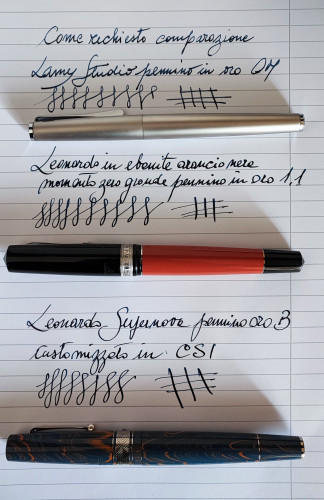 Come richiesto comparazione
Lamy Studio pennino in oro OM
Leonardo in ebanite arancio nera
momento zero grande pennino in oro 1,1
Leonardo Supernova pennino oro B
customizzato in CSI